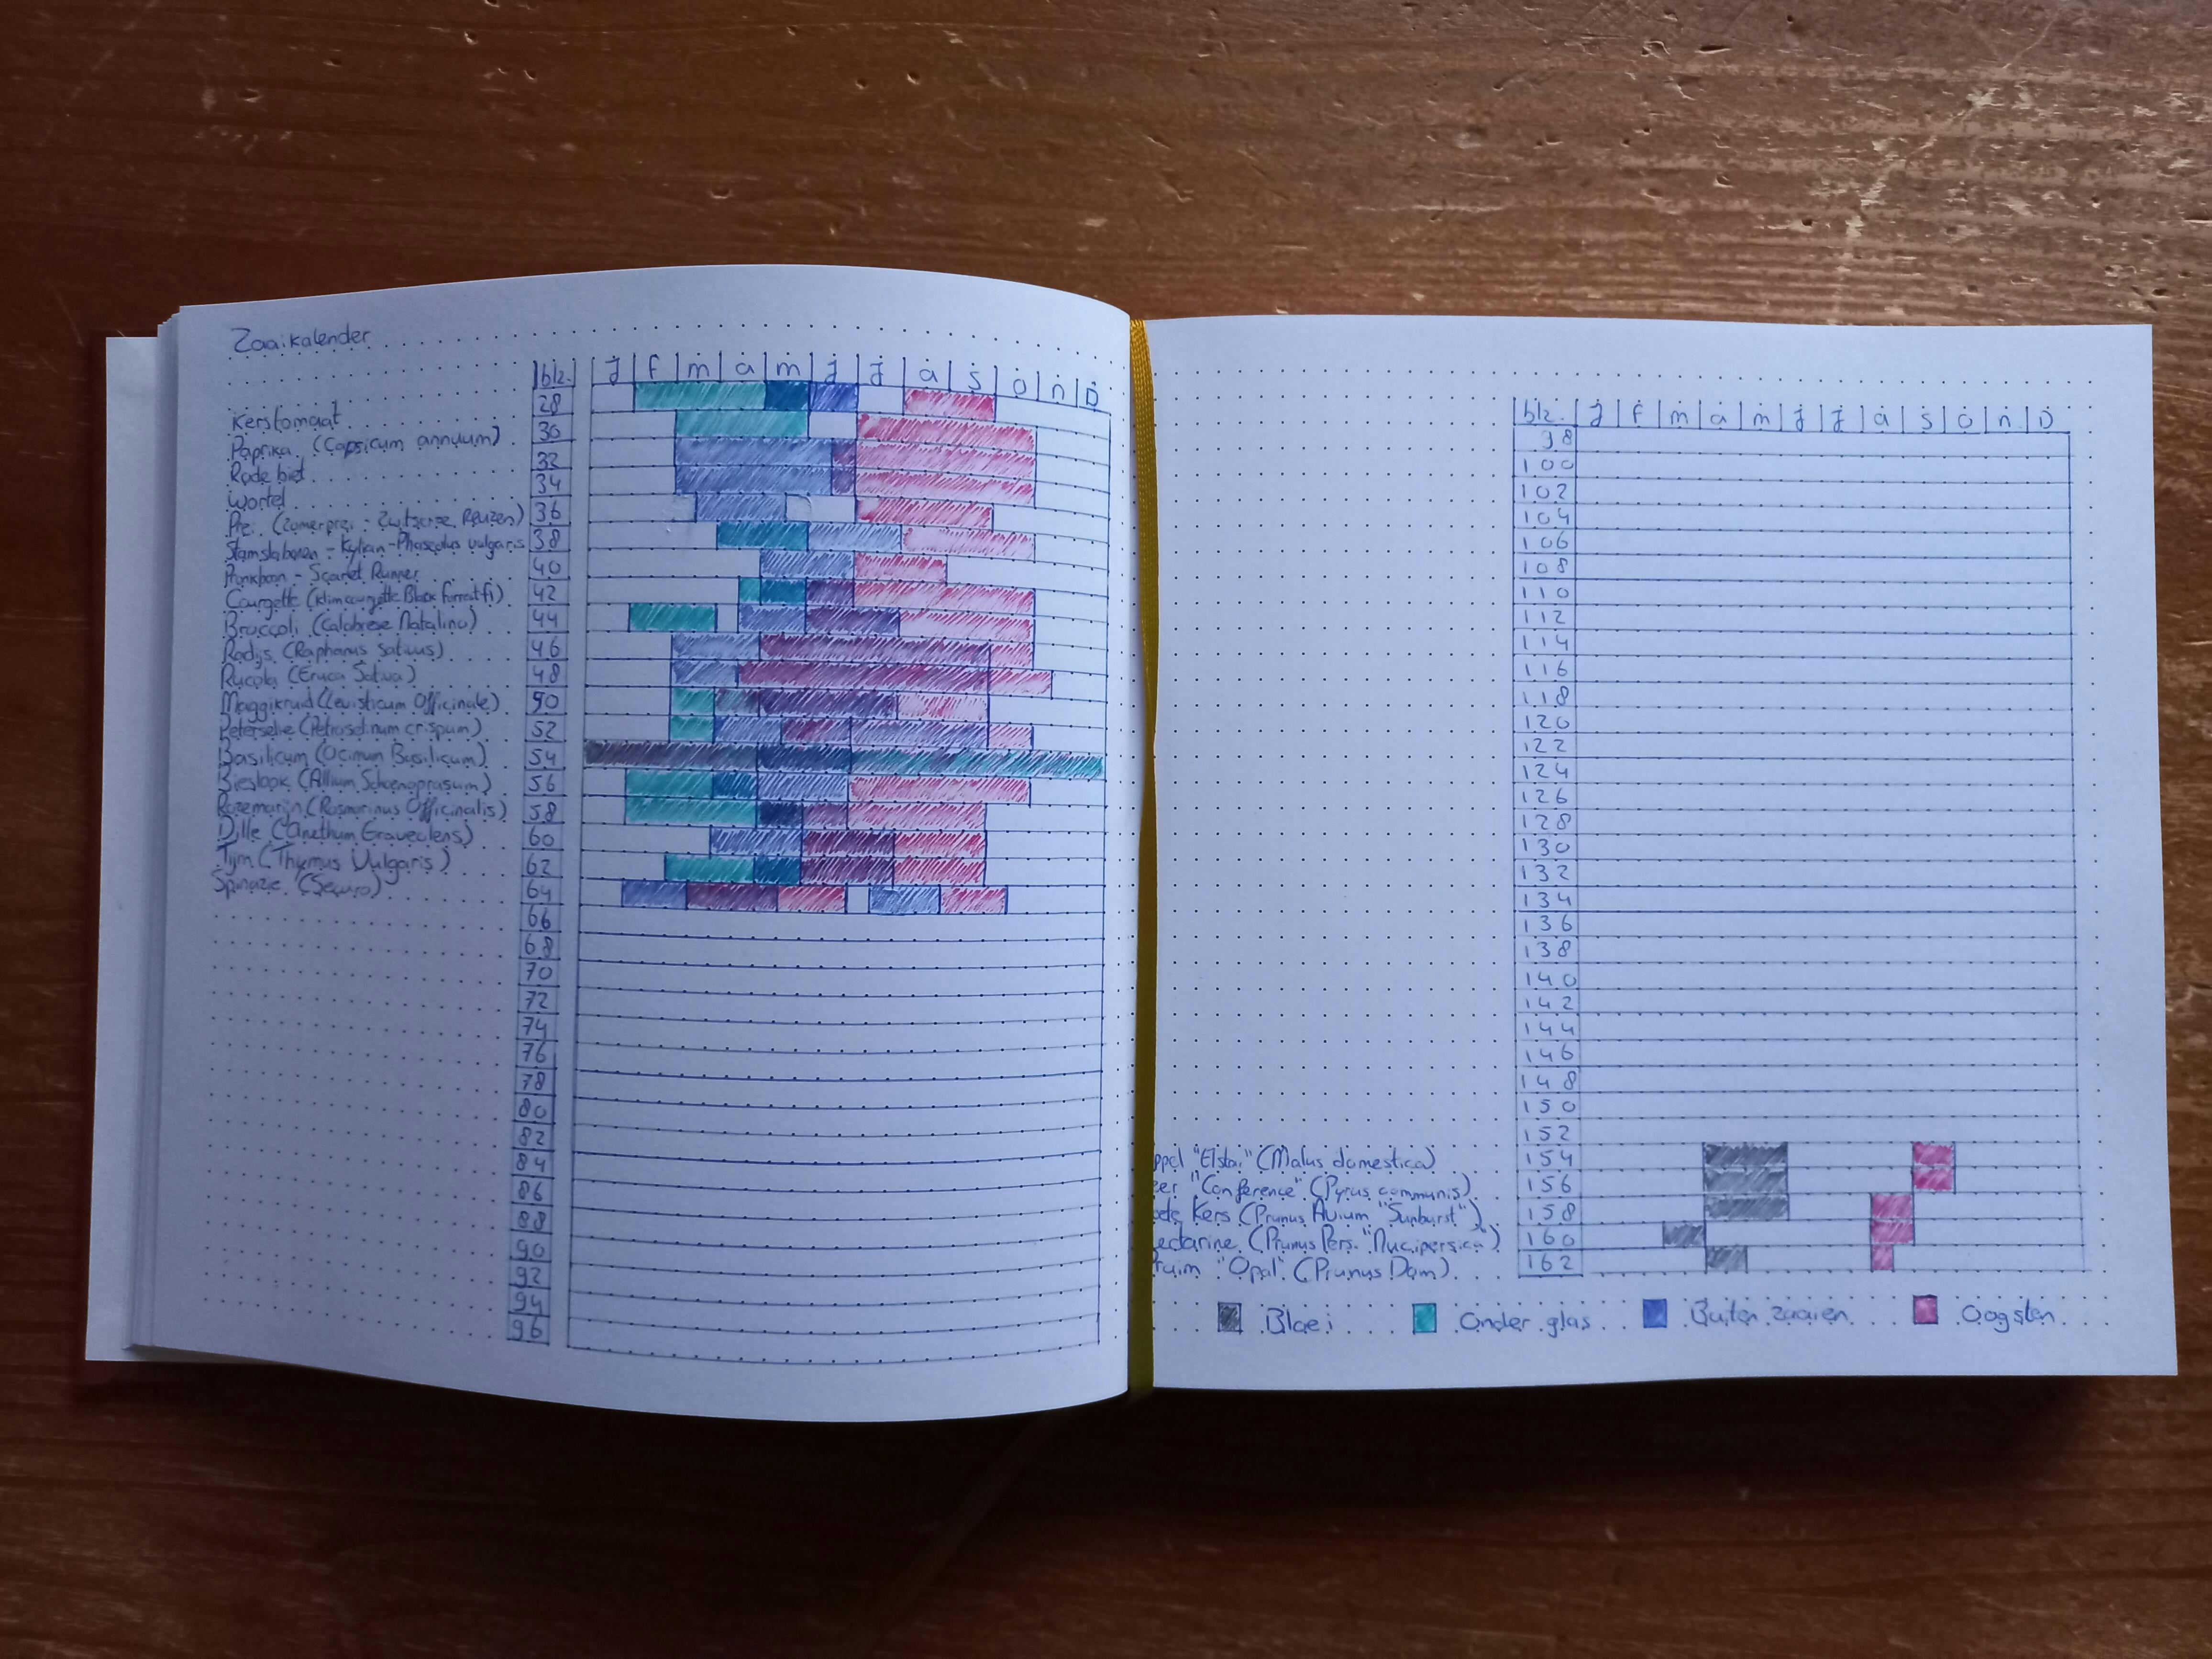 Zaaikalender
blz. J f m a m J J a S O n D
Kerstomaat 28
Paprika (Capsicum annuum) 30
Rode biet 32
Wortel 34
Prei (Zomerprei - Reuzen) 36
Stamslabonen - Kylian - Phaseolus vulgaris 38
Pronkboon - Scarlet Runner 40
Courgette (klimcourgette Black forrest f1) 42
Broccoli (Calabrese Natalino) 44
Radijs (Raphanus Sativus) 46
Rucola (Eruca Sativa) 48
Maggikruid (Levisticum Officinale) 50
Peterselie (Petroselinum crispum) 52
Basilicum (Ocimum Basilicum) 54
Bieslook (Allium Schoenoprasum) 56
Rozemarijn (Rosmarinus Officinalis) 58
Dille (Anethum Graveolens) 60
Tijm (Thymus Vulgaris) 62
Spinazie (Securo) 64
66
68
70
72
74
76
78
80
82
84
86
88
90
92
94
96
blz. J f m a m J J a S O n D
98
100
102
104
106
108
110
112
114
116
118
120
122
124
126
128
130
132
134
136
138
140
142
144
146
148
150
152
ppel "Elstar" (Malus domestica) 154
eer "Conference" (Pyrus communis) 156
ete Kers (Prunus Avium "Sunburst") 158
ectarine (Prunus Pers. "Nucipersica") 160
ruim "Opal" (Prunus Dom) 162
Bloei Onder glas Buiten zaaien Oogsten